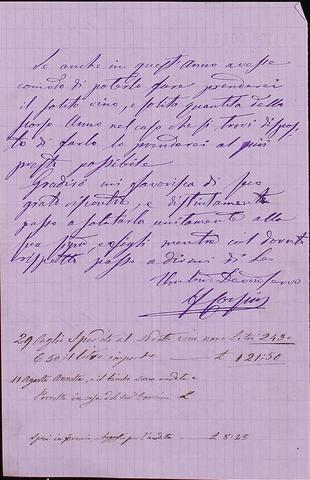 Se anche in quest'Anno avesse
comodo di poterlo fare prenderei
il solito vino, e solita quantità dello
scorso Anno nel caso che si trovi dispos-
to di farlo lo prenderei al più
presto possibile
Gradirò mi favorisca di suo
grato riscontro, e distintamente
passo a salutarla unitamente alla
sua Sigra e figli mentre col dovuto
rispetto passo a dirmi di Lei
Umilmo Devmo Servo
29 Luglio Spedito al vino nero Litri 243
C 50 il litro importo £ 121:50
11 Agosto andata e
in casa del £
per l'andata £ 8:25